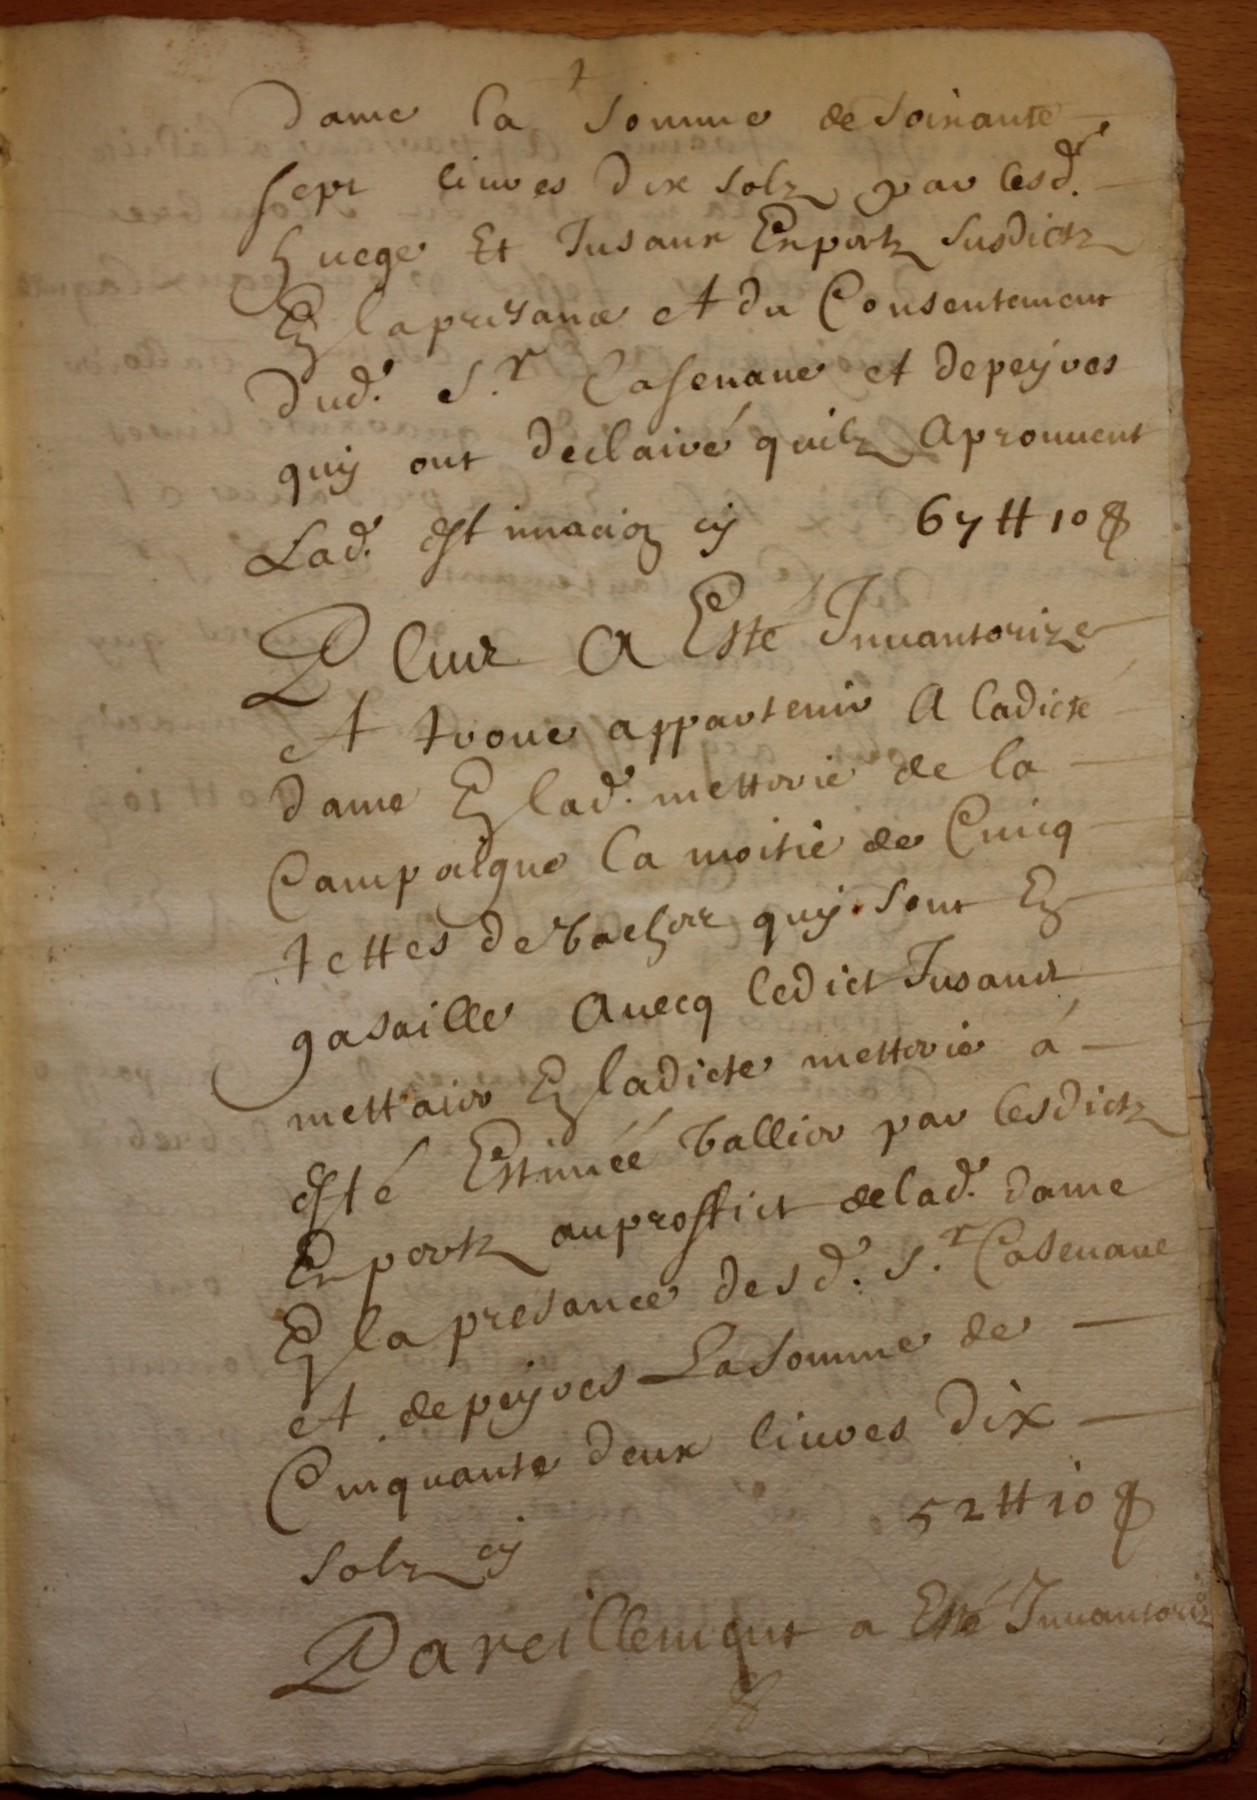 dame la somme de soixante
sept liures dix solz par lesd.
huege Et Jusanx Expertz susdictz
En la presance et du Consentement
dud. Sr Casenaue et depeyres
quy ont declairé quilz Aprouuent
Lad. estimacion cy 67 tt 10 s
Plus A Esté Inuantorizé
et troué appartenir A ladicte
dame En lad. metterie de la
Campaigne la moitié de Cuicq
tettes de vaches quy sont En
gasaille Auecq ledict Jusanx
mettaier En ladicte metterie à
esté Estimée vallior par lesdictz
Expertz au proffict de lad. dame
En la presance desd. Sr Casenaue
et depeyres La somme de
Cinquante deux liures dix
solz cy 52 tt 10 s
Pareillement a Esté Inuantorizé